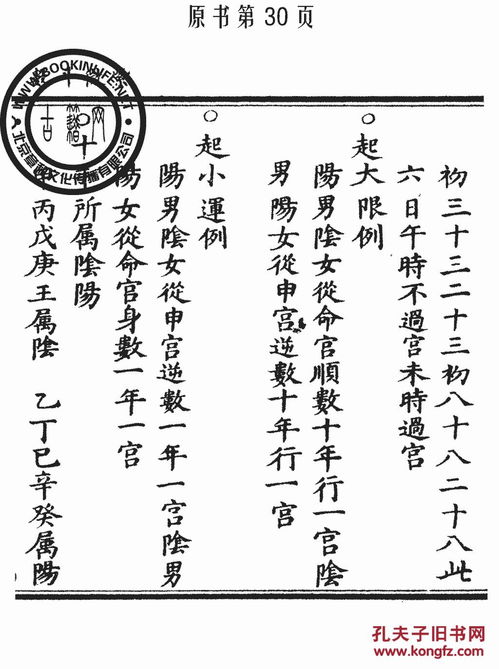 原书第30页
初三十三二十三初八十八二十八此
六日午時不過宫未時過宫
○起大限例
陽男陰女從命官順數十年行一宫陰
男陽女從申宫逆數十年行一宫
○起小運例
陽男陰女從申宫逆數一年一宫陰男
陽女從命宫身數一年一宫
○十所属陰陽
丙戊庚王属陰 乙丁巳辛癸属陽
WWW.BOOKINLIFE.NET
北京文化传播有限公司
孔夫子旧书网
www.kongfz.com